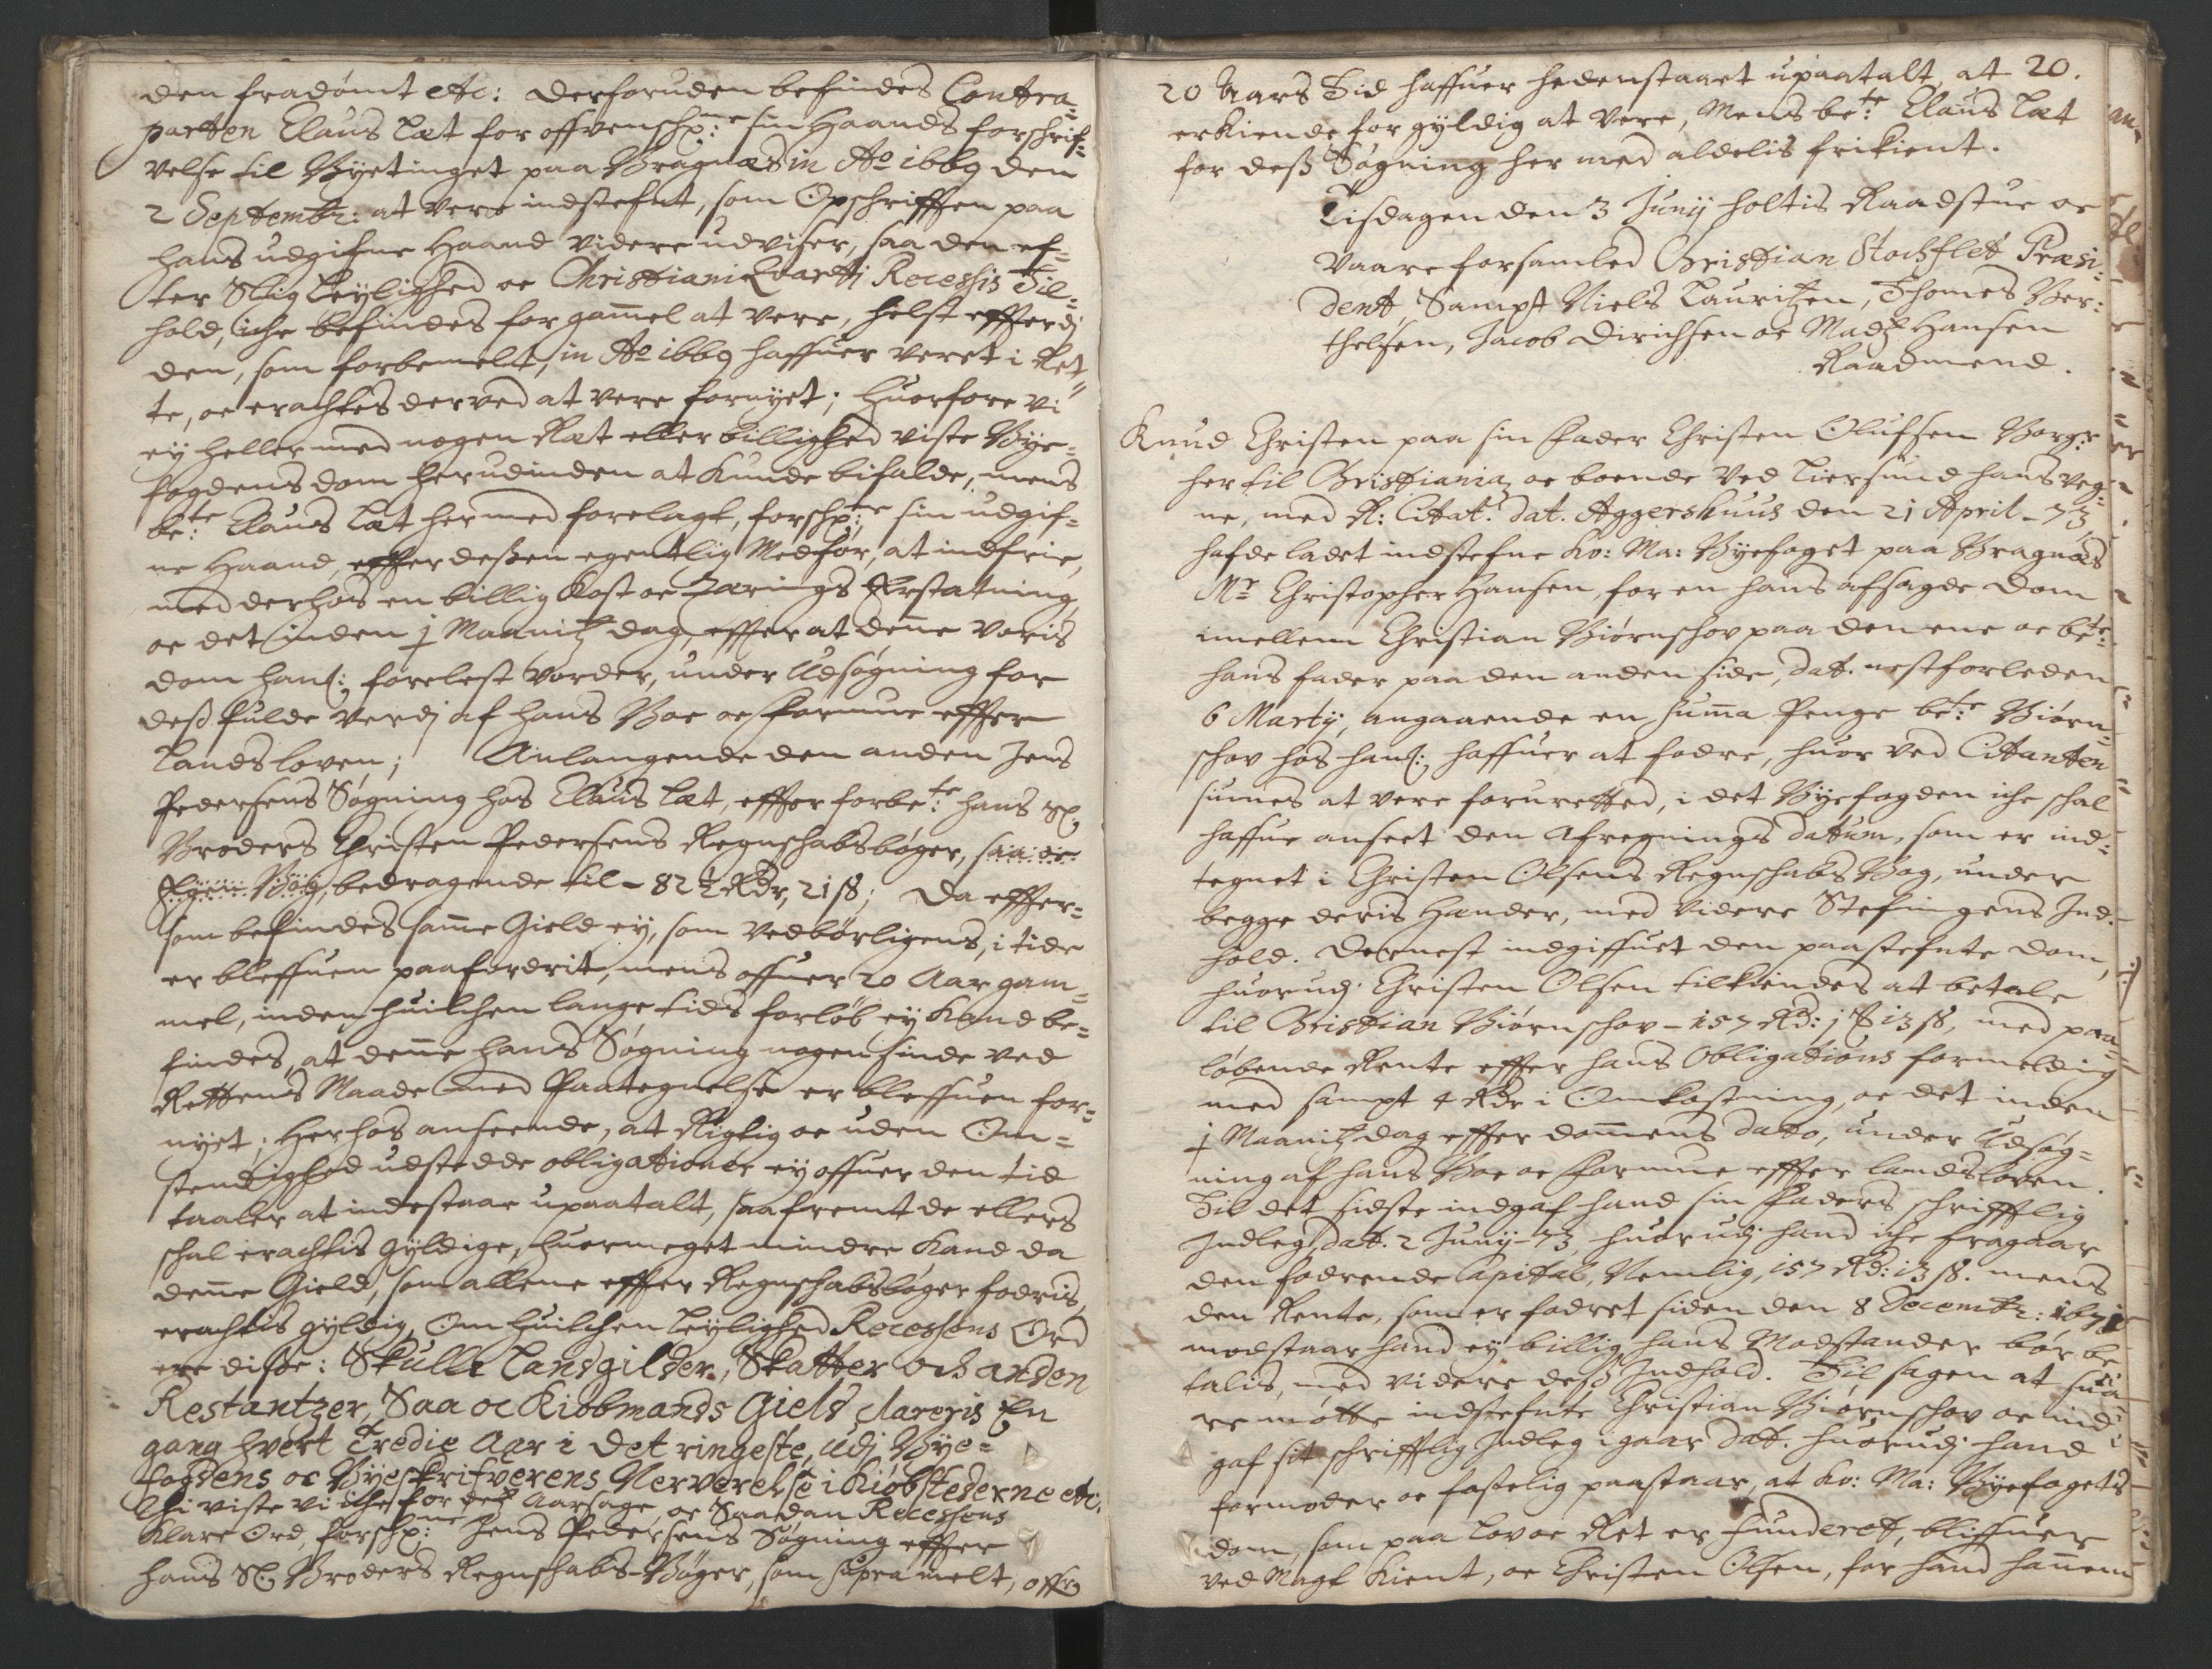 den fradømt etc: Derforuden befindes Contra-
parten Claus Læt for offvenschr:ne sin Haands forschrif-
velse til Byetinget paa Bragnæs in Ao 1669 den
2 Septembr: at vere indstefnt, som Opschrifften paa
hans udgifne Haand videre udviser, saa den ef-
ter slig Leylighed oc Christiani Qvarti Recessis Til-
hold, iche befindes for gammel at vere, helst effterdj
den, som forbemelt, in Ao 1669 haffuer veret i Ret-
te, oc erachtes derved at vere fornyet; Huorfore vi
ey heller med nogen Ræt eller billighed viste Bye-
fogdens dom herudinden at kunde bifalde, mens
be:te Claus Læt hermed forelagt, forschr:ne sin udgif-
ne Haand, effter deßen egentlig Medfør, at indfrie,
med derhos en billig Kost oc Tærings Erstatning,
oc det inden j Maanitz dag, effter at denne voris
dom hannem forelest vorder, under Udsøgning for
deß fulde verdj af hans Boe oc formue effter
Landsloven; Anlangende den anden Jens
Pedersens Søgning hos Claus Læt, effter forbe:te hans Sl.
Broders Christen Pedersens Regnschabsbøger, saa oc
Egen Bog, bedragende til - 82½ Rdr, 21 ß; Da effter-
som befindes samme Gield ey, som vedbørligens, i tide
er bleffuen paafordrit, mens offuer 20 Aar gam-
mel, inden huilchen lange tids forløb ey kand be-
findes, at denne hans Søgning nogensinde ved
Rettens Maade med Paategnelse er bleffuen for-
nyet; Herhos anseende, at Rigtig oc uden Om-
stendighed udstedde obligationer ey offuer den tid
taaler at indestaae upaatalt, saafremt de ellers
schal erachtis gyldige, huormeget mindre kand da
denne Gield, som allene effter Regnschabsbøger fodris,
erachtis gyldig, Om huilchen Leylighed Recessens Ord
ere disse: Skulle Landsgilder, Skatter och anden
Restantzer, Saa oc Kiøbmands Gield clareris En
gang hvert Tredie Aar i det ringeste, udj Bye-
fogdens oc Byeskrifverens Nerverelse i Kiøbstederne etc.
Thi viste vi iche for deß Aarsage, oc Saadan Recessens
klare Ord, forschr:ne Jens Pedersens Søgning effter
hans Sl. Broders Regnschabs-Bøger, som supra melt, offr
20 Aars Tid haffuer hedenstaaet upaatalt, at 20.
erkiende for gyldig at vere, Mens be:te Claus Læt
for deß Søgning her med aldelis frikient.
Tisdagen den 3 Junij holtis Raadstue oc
vaare forsamled Christian Stochflet Præsi-
dent, Sampt Niels Lauritzen, Thomes Ber-
thelsen, Jacob Dirichsen oc Madtz Hansen
Raadmend.
Knud Christen paa sin Fader Christen Olufsen Borger
her til Christiania oc boende ved Liersund hans veg-
ne, med R: Citat: dat. Aggershuus den 21 April - 73,
hafde ladet indstefne Ko: Ma: Byefoget paa Bragnæs
Mr Christopher Hansen, for en hans afsagde dom
imellem Christian Biørnschov paa den ene oc be:te
hans fader paa den anden side, dat. nestforleden
6 Martij, angaaende en summa Penge be:te Biørn-
schov hos hannem haffuer at fodre, huor ved Citanten
siunes at vere foruretted, i det Byefogden iche schal
haffue anseet den Afregnings datum, som er ind-
tegnet i Christen Olsens Regnschabs Bog, under
begge deris Hænder, med videre Stefningens Ind-
hold. Dernest indgiffuet den paastefnte dom,
huorudj Christen Olsen tilkiendes at betale
til Christian Biørnschov - 157 Rd: j 13 ß, med paa-
løbende Rente effter hans Obligations formelding
med sampt 4 Rdr i Omkostning, oc det inden
j Maanitz dag effter dommens dato, under Udsøg-
ning af hans Boe oc formue effter landsloven.
Til det sidste indgaf hand sin Faders schrifftlig
Indleg, dat. 2 Junij - 73, huorudj hand iche fragaar
den fodrende Capital, Nemlig, 157 Rd: 13 ß. mens
den Rente, som er fodret siden den 8 Decembr: 1671
modstaar hand ey billig hans Modstander bør be-
talis, med videre deß Indhold. Til sagen at sua-
re møtte indstefnte Christian Biørnschov oc ind-
gaf sit schrifftlig Indleg igaar dat. huorudj hand
formoder oc fastelig paastaar, at Ko: Ma: Byefogets
dom, som paa lov oc Ret er funderet, bliffuer
ved Magt kient, oc Christen Olsen, for hand hannem